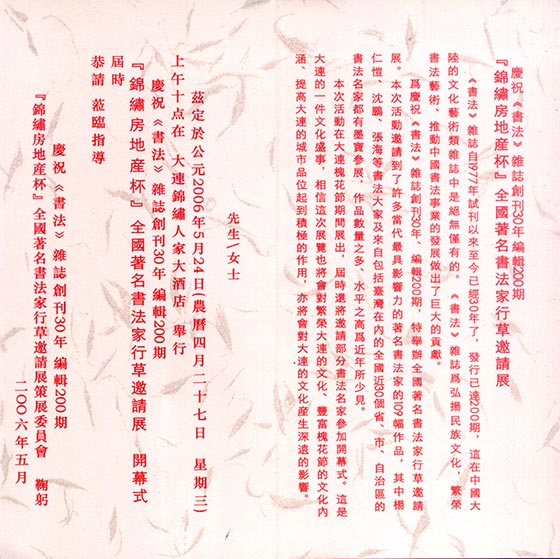 慶祝《書法》雜誌創刊30年編輯200期
『錦繡房地産杯』全國著名書法家行草邀請展
《書法》雜誌自1977年試刊以來至今已經30年了，發行已達200期，這在中國大
陸的文化藝術類雜誌中是絕無僅有的。《書法》雜誌爲弘揚民族文化，繁榮
書法藝術、推動中國書法事業的發展做出了巨大的貢獻。
爲慶祝《書法》雜誌創刊30年、編輯200期，特舉辦全國著名書法家行草邀請
展。本次活動邀請到了許多當代最具影響力的著名書法家的109幅作品，其中楊
仁愷、沈鵬、張海等書法大家及來自包括臺灣在内的全國近30個省、市、自治區的
書法名家都有墨寶參展，作品數量之多、水平之高爲近年所少見。
本次活動在大連槐花節期間展出，屆時還將邀請部分書法名家參加開幕式。這是
大連的一件文化盛事，相信這次展覽也將會對繁榮大連的文化、豐富槐花節的文化内
涵、提高大連的城市品位起到積極的作用，亦將會對大連的文化産生深遠的影響。
先生/女士
茲定於公元2006年5月24日(農曆四月二十七日 星期三)
上午十点在 大連錦繡人家大酒店 舉行
慶祝《書法》雜誌創刊30年編輯200期
『錦繡房地産杯』全國著名書法家行草邀請展 開幕式
屆時
恭請 蒞臨指導
慶祝《書法》雜誌創刊30年編輯200期
『錦繡房地産杯』全國著名書法家行草邀請展策展委員會 鞠躬
二〇〇六年五月